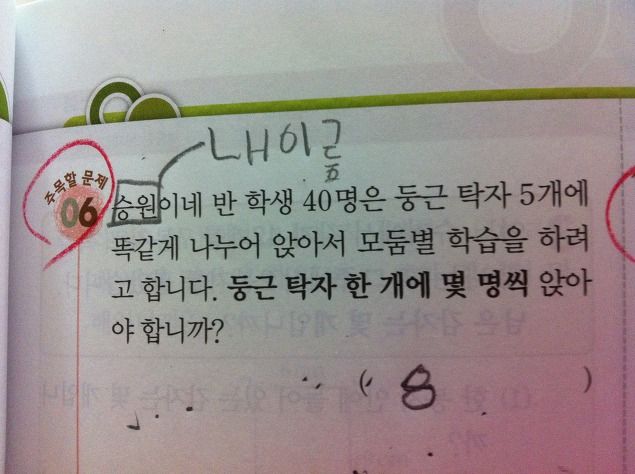 내이름
주목할 문제
06
승원이네 반 학생 40명은 둥근 탁자 5개에
똑같게 나누어 앉아서 모둠별 학습을 하려
고 합니다. 둥근 탁자 한 개에 몇 명씩 앉아
야 합니까?
( 8 )